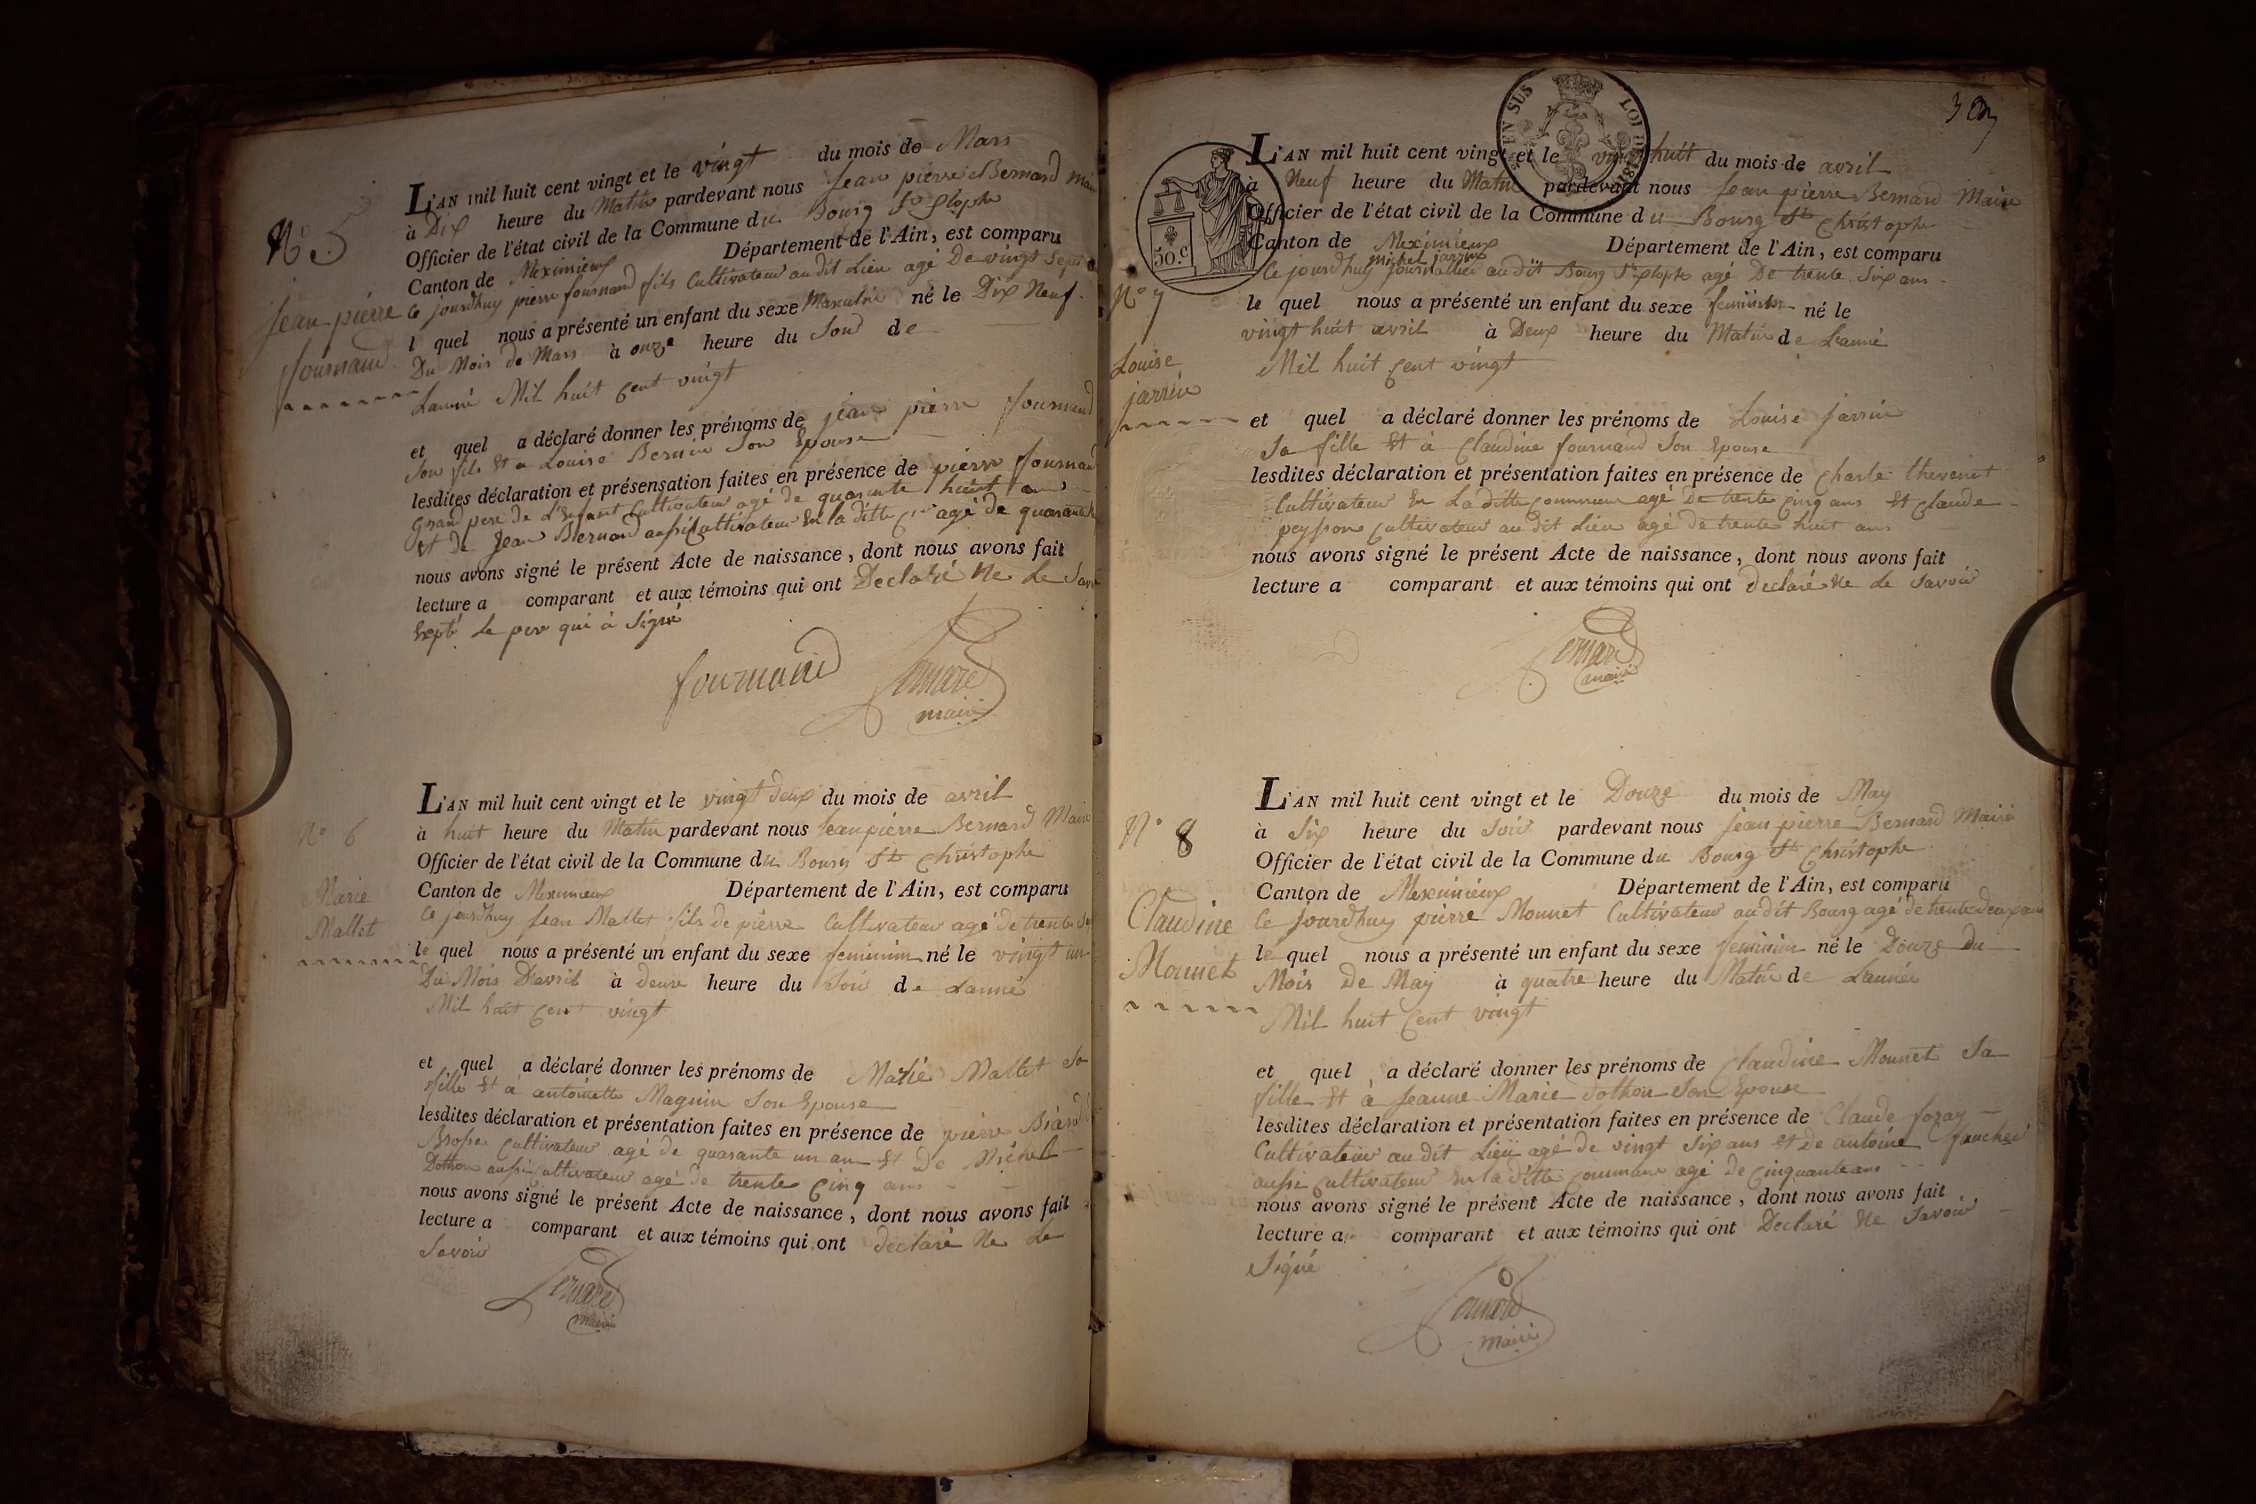 N° 5
Jean-pierre
fournand
L'AN mil huit cent vingt et le vingt du mois de Mars
à Dix heure du Matin pardevant nous Jean pierre Bernard Maire
Officier de l'état civil de la Commune du Bourg St Xtophe
Canton de Meximieux Département de l'Ain, est comparu
Ce jourdhuy pierre fournand fils Cultivateur au dit Lieu agé De vingt Sept
l quel nous a présenté un enfant du sexe Masculin né le Dix Neuf
Du Mois de Mars à onze heure du Soir de
Lanné Mil huit Cent vingt
et quel a déclaré donner les prénoms de jean pierre fournand
Son fils Et a Louise Bernin Son Epouse
lesdites déclaration et présensation faites en présence de pierre fournand
Grand pere de L'Enfant Cultivateur agé de quarante huit ans
Et de Jean Bernard aussi Cultivateur En la ditte Cne agé de quarante
nous avons signé le présent Acte de naissance, dont nous avons fait
lecture a comparant et aux témoins qui ont Declaré Ne Le Savoir
Exepté Le pere qui à Signé
fournand Bernard
maire
N° 6
Marie
Mallet
L'AN mil huit cent vingt et le vingt deux du mois de avril
à huit heure du Matin pardevant nous Jean pierre Bernard Maire
Officier de l'état civil de la Commune du Bourg St Christophe
Canton de Meximieux Département de l'Ain, est comparu
Ce jourdhuy Jean Mallet fils de pierre Cultivateur agé de trente
le quel nous a présenté un enfant du sexe feminin né le vingt un
Du Mois D'avril à deux heure du Soir de Lanné
Mil huit Cent vingt
et quel a déclaré donner les prénoms de Marie Mallet Sa
fille Et à antoinette Magnin Son Epouse
lesdites déclaration et présentation faites en présence de pierre
Brosse Cultivateur agé de quarante un an Et De Michel
Dothon aussi Cultivateur agé de trente Cinq ans
nous avons signé le présent Acte de naissance, dont nous avons fait
lecture a comparant et aux témoins qui ont declaré Ne Le
Savoir
Bernard
maire
3
EN SUS
LOI DE 1816
50.C
N° 7
Louise
jarrin
L'AN mil huit cent vingt et le vingt huit du mois de avril
à Neuf heure du Matin pardevant nous Jean pierre Bernard Maire
Officier de l'état civil de la Commune du Bourg St Christophe
Canton de Meximieux Département de l'Ain, est comparu
michel jarrin
Ce jourdhuy journallier au dit Bourg St Xtophe agé De trente Six ans
le quel nous a présenté un enfant du sexe feminin né le
vingt huit avril à Deux heure du Matin de Lanné
Mil huit Cent vingt
et quel a déclaré donner les prénoms de Louise jarrin
Sa fille Et à Claudine fournand Son Epouse
lesdites déclaration et présentation faites en présence de Charle thevenet
Cultivateur En La ditte Commune agé De trente Cinq ans Et Claude
peysson Cultivateur au dit Lieu agé de trente huit ans
nous avons signé le présent Acte de naissance, dont nous avons fait
lecture a comparant et aux témoins qui ont declaré Ne Le Savoir
Bernard
maire
N° 8
Claudine
Monnet
L'AN mil huit cent vingt et le Douze du mois de May
à Six heure du Soir pardevant nous Jean pierre Bernard Maire
Officier de l'état civil de la Commune du Bourg St Christophe
Canton de Meximieux Département de l'Ain, est comparu
Ce Jourdhuy pierre Monnet Cultivateur au dit Bourg agé de trente deux ans
le quel nous a présenté un enfant du sexe feminin né le Douze du
Mois De May à quatre heure du Matin de Lannée
Mil huit Cent vingt
et quel a déclaré donner les prénoms de Claudine Monnet Sa
fille Et à Jeanne Marie Dothon Son Epouse
lesdites déclaration et présentation faites en présence de Claude foray
Cultivateur au dit Lieu agé de vingt Six ans Et De antoine faucher
aussi Cultivateur En la ditte Commune agé De Cinquante ans
nous avons signé le présent Acte de naissance, dont nous avons fait
lecture a comparant et aux témoins qui ont Declaré Ne Savoir
Signé
Bernard
maire